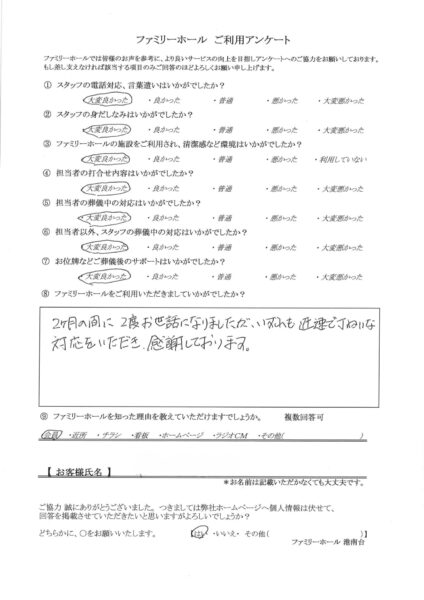 ファミリーホール ご利用アンケート
ファミリーホールでは皆様のお声を参考に、より良いサービスの向上を目指しアンケートへのご協力をお願いしております。
もし差し支えなければ該当する項目のみご回答のほどよろしくお願い申し上げます。
① スタッフの電話対応、言葉遣いはいかがでしたか？
・大変良かった ・良かった ・普通 ・悪かった ・大変悪かった
② スタッフの身だしなみはいかがでしたか？
・大変良かった ・良かった ・普通 ・悪かった ・大変悪かった
③ ファミリーホールの施設をご利用され、清潔感など環境はいかがでしたか？
・大変良かった ・良かった ・普通 ・悪かった ・利用していない
④ 担当者の打合せ内容はいかがでしたか？
・大変良かった ・良かった ・普通 ・悪かった ・大変悪かった
⑤ 担当者の葬儀中の対応はいかがでしたか？
・大変良かった ・良かった ・普通 ・悪かった ・大変悪かった
⑥ 担当者以外、スタッフの葬儀中の対応はいかがでしたか？
・大変良かった ・良かった ・普通 ・悪かった ・大変悪かった
⑦ お位牌などご葬儀後のサポートはいかがでしたか？
・大変良かった ・良かった ・普通 ・悪かった ・大変悪かった
⑧ ファミリーホールをご利用いただきましていかがでしたか？
2ヶ月の間に2度お世話になりましたが、いずれも迅速で丁ねいな
対応をいただき、感謝しております。
⑨ ファミリーホールを知った理由を教えていただけますでしょうか。 複数回答可
会員 ・近所 ・チラシ ・看板 ・ホームページ ・ラジオCM ・その他( )
【 お客様氏名 】
＊お名前は記載いただかなくても大丈夫です。
ご協力 誠にありがとうございました。つきましては弊社ホームページへ個人情報は伏せて、
回答を掲載させていただきたいと思いますがよろしいでしょうか？
どちらかに、○をお願いいたします。 【はい ・いいえ・ その他( )】
ファミリーホール 港南台